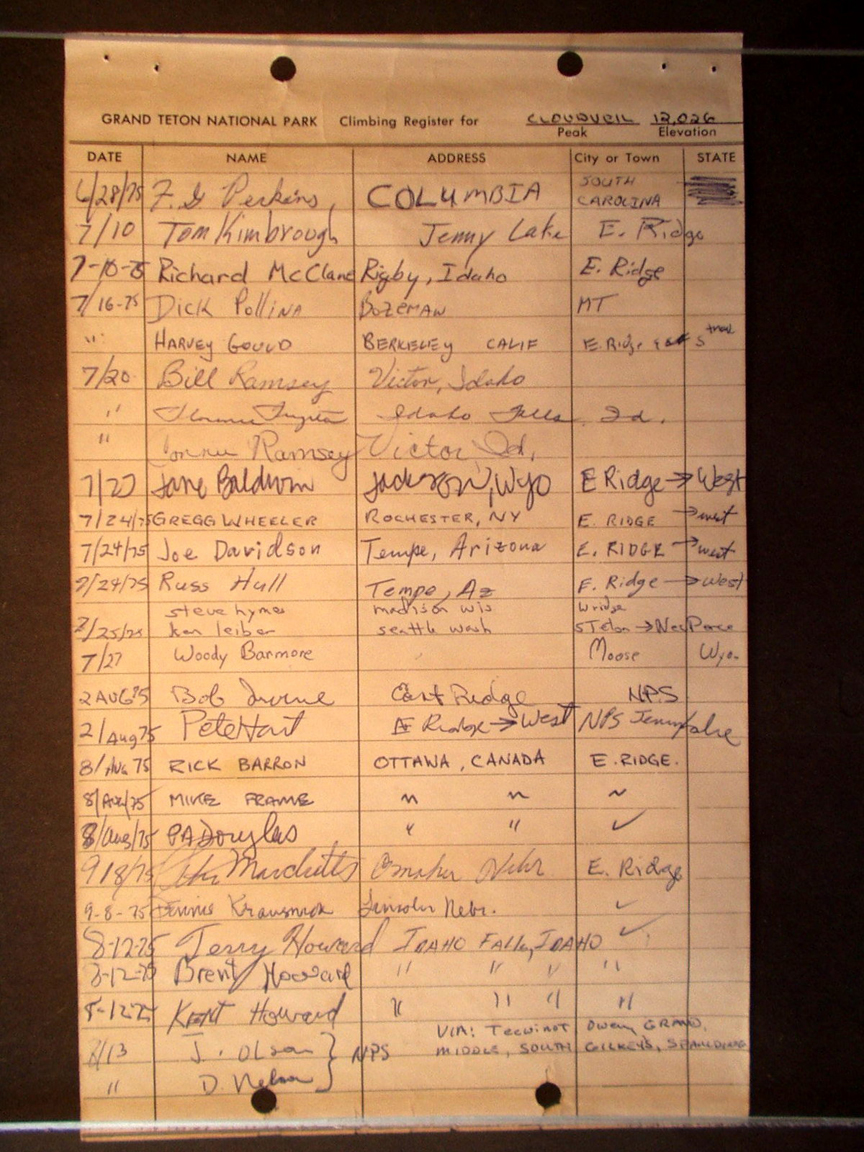 GRAND TETON NATIONAL PARK Climbing Register for CLOUDVEIL 12,026
Peak Elevation
DATE NAME ADDRESS City or Town STATE
6/28/75 F. G Perkins, COLUMBIA SOUTH CAROLINA
7/10 Tom Kimbrough Jenny Lake E. Ridge
7-10-75 Richard McClane Rigby, Idaho E. Ridge
7/16-75 Dick Pollina Bozeman MT
" HARVEY GOULD BERKELEY CALIF E. Ridge
7/20 Bill Ramsey Victor, Idaho
" Idaho Falls, Id.
" Connie Ramsey Victor Id.
7/27 Jane Baldwin Jackson, Wyo E Ridge → West
7/24/75 GREGG WHEELER ROCHESTER, NY E. RIDGE → west
7/24/75 Joe Davidson Tempe, Arizona E. RIDGE → west
7/24/75 Russ Hull Tempe, Az E. Ridge → West
steve hymes madison wis W ridge
7/25/75 ken leiber seattle wash S Teton → Nez Perce
7/27 Woody Barmore Moose Wyo.
2 AUG 75 Bob Irvine East Ridge NPS
2/Aug 75 Pete Hart E Ridge → West NPS Jenny Lake
8/AUG 75 RICK BARRON OTTAWA, CANADA E. RIDGE.
8/AUG/75 MIKE FRAME " " "
8/Aug/75 PA Douglas " " ✓
9/8/75 Marchetti Omaha Nebr E. Ridge
9-8-75 Dennis Lincoln Nebr. ✓
8-12-75 Terry Howard IDAHO FALLS, IDAHO ✓
8-12-75 Brent Howard " " " "
8-12-75 Kent Howard " " " "
VIA: TEEWINOT, OWEN, GRAND,
8/13 J. Olson } NPS MIDDLE, SOUTH GILKEYS, SPAULDING
" D Nelson